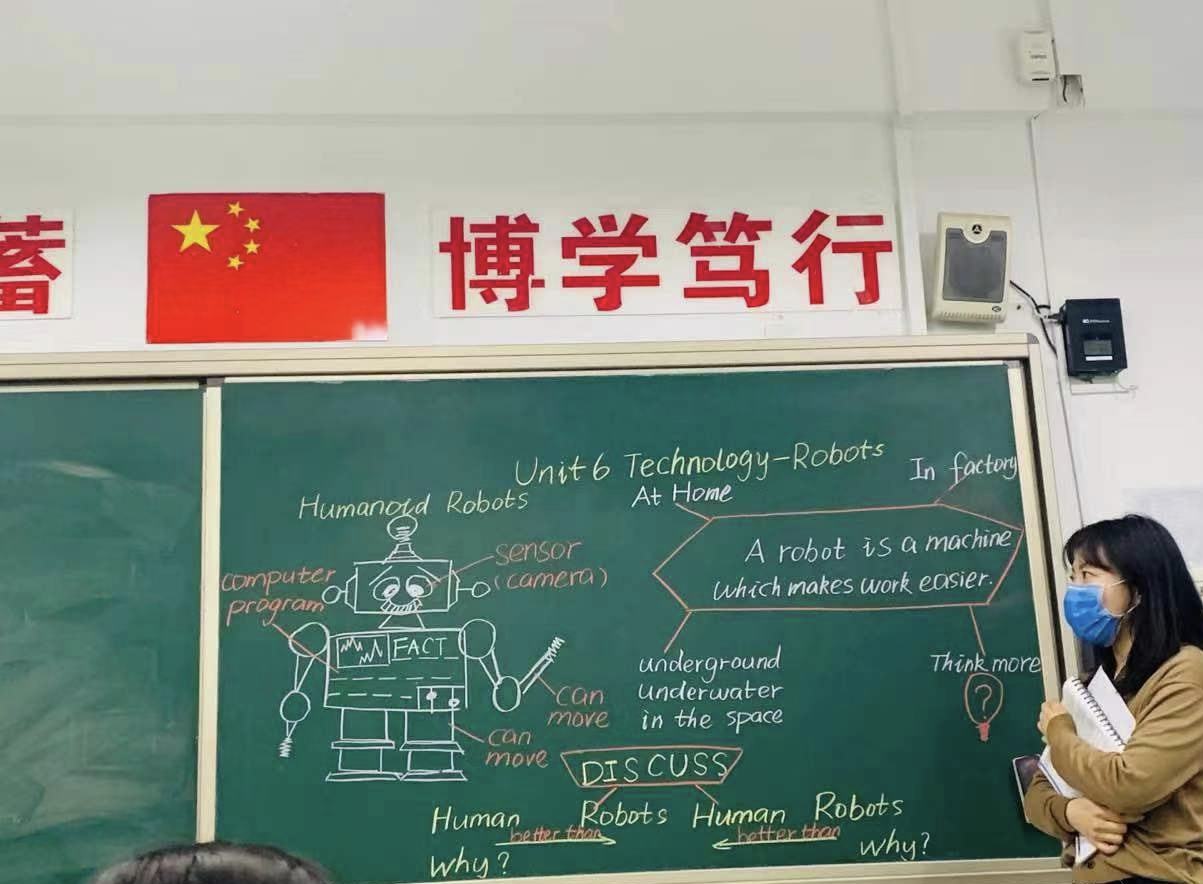 蓄
博学笃行
Unit 6 Technology-Robots
Humanoid Robots
At Home
In factory
sensor
(camera)
computer
program
A robot is a machine
which makes work easier.
FACT
can
move
can
move
underground
underwater
in the space
Think more
?
DISCUSS
Human Robots
better than
why?
Human Robots
better than
why?